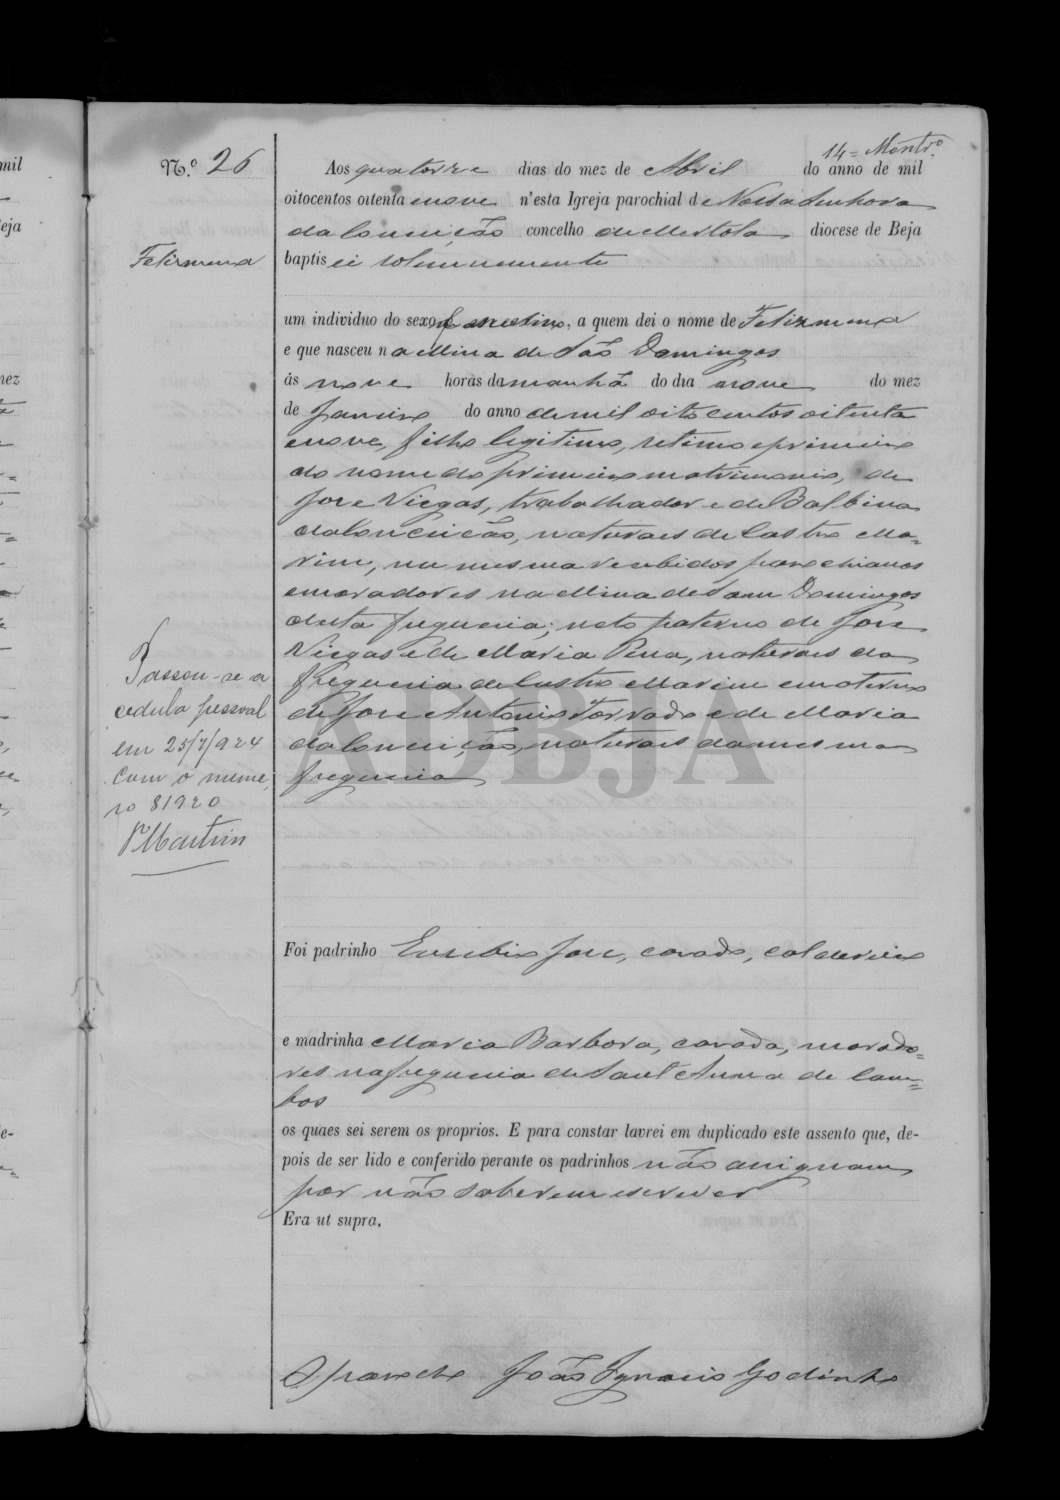 14 = Montro.
N.º 26
Aos quatorze dias do mez de Abril do anno de mil
oitocentos oitenta e nove n'esta Igreja parochial de Nossa Senhora
da Conceição concelho de Mertola diocese de Beja
Felizmena
baptisei solemnemente
um individuo do sexo femenino, a quem dei o nome de Felizmena
e que nasceu na Mina de São Domingos
ás nove horas da manhã do dia nove do mez
de Janeiro do anno de mil oito centos oitenta
e nove, filho legitimo, setimo e primeiro
do nome do primeiro matrimonio, de
Jose Viegas, trabalhador e de Balbina
da Conceição, naturaes de Castro Ma=
rim, na mesma recebidos parochianos
e moradores na Mina de Sam Domingos
desta freguezia; neto paterno de Jose
Viegas e de Maria Pena, naturaes da
freguezia de Castro Marim e materno
de Jose Antonio Torrado e de Maria
da Conceição, naturaes da mesma
freguezia
Passou-se a
cedula pessoal
em 25/7/924
com o nume
ro 81920
P. Martins
ADBJA
Foi padrinho Euzebio Jose, casado, caldereiro
e madrinha Maria Barbora, casada, morado=
res na freguezia de Sant Anna de Cam=
bas
os quaes sei serem os proprios. E para constar lavrei em duplicado este assento que, de-
pois de ser lido e conferido perante os padrinhos não assignam,
por não saberem escrever
Era ut supra.
O parocho João Ignacio Godinho